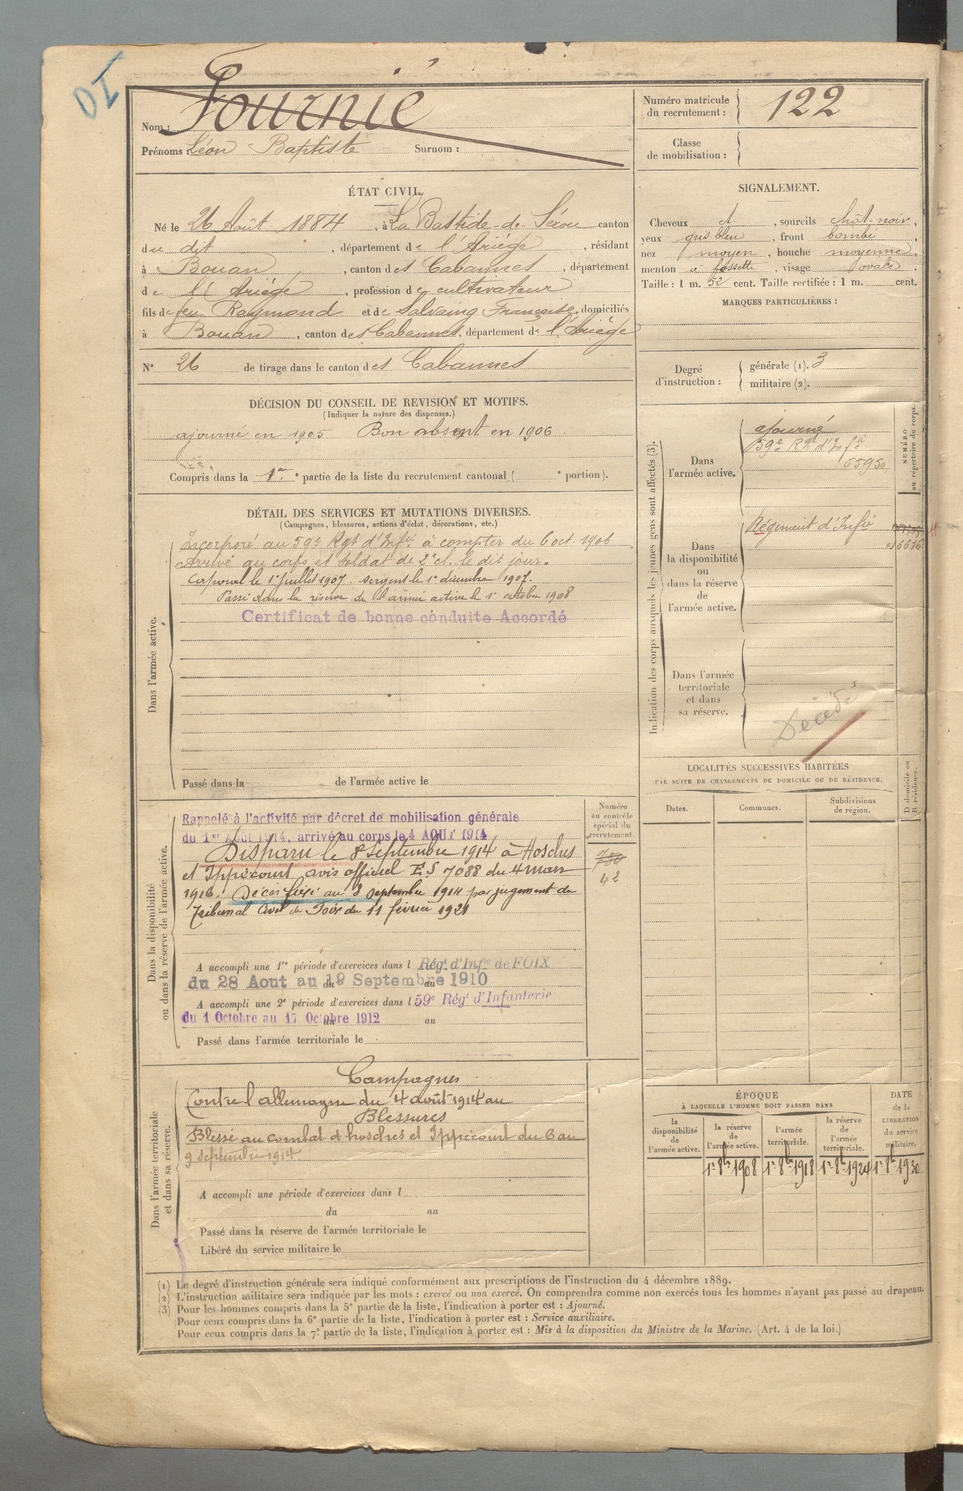 DI
Nom : Fournié
Prénoms : Léon Baptiste Surnom :
Numéro matricule du recrutement : 122
Classe de mobilisation :
ÉTAT CIVIL.
Né le 26 Août 1884, à La Bastide-de-Sérou canton
du dit, département de l'Ariège, résidant
à Bouan, canton des Cabannes, département
de l'Ariège, profession de cultivateur
fils de feu Raymond et de Salvaing Françoise, domiciliés
à Bouan, canton des Cabannes, département de l'Ariège
N° 26 de tirage dans le canton des Cabannes
SIGNALEMENT.
Cheveux et, sourcils chât-noir,
yeux gris-bleu, front bombé
nez moyen, bouche moyenne,
menton à fossette, visage ovale.
Taille : 1 m. 52 cent. Taille rectifiée : 1 m. cent.
MARQUES PARTICULIÈRES :
Degré d'instruction : générale (1). 3
militaire (2).
DÉCISION DU CONSEIL DE REVISION ET MOTIFS.
(Indiquer la nature des dispenses.)
ajourné en 1905 Bon absent en 1906
Compris dans la 1re partie de la liste du recrutement cantonal ( portion).
DÉTAIL DES SERVICES ET MUTATIONS DIVERSES.
(Campagnes, blessures, actions d'éclat, décorations, etc.)
Dans l'armée active.
Incorporé au 59e Rgt d'Infie à compter du 6 oct. 1906
Arrivé au corps et soldat de 2e cl. le dit jour.
Caporal le 1er juillet 1907. Sergent le 1er décembre 1907.
Passé dans la réserve de l'armée active le 1er octobre 1908
Certificat de bonne conduite Accordé
Passé dans la de l'armée active le
Indication des corps auxquels les jeunes gens sont affectés (3).
NUMÉRO au répertoire du corps.
Dans l'armée active.
ajourné
59e Rgt d'Infie
65950
Dans la disponibilité ou dans la réserve de l'armée active.
Régiment d'Infie
016676
Dans l'armée territoriale et dans sa réserve.
Décédé
LOCALITÉS SUCCESSIVES HABITÉES
PAR SUITE DE CHANGEMENTS DE DOMICILE OU DE RÉSIDENCE.
Dates. Communes. Subdivisions de région. D domicile ou R résidence.
Dans la disponibilité ou dans la réserve de l'armée active.
Numéro au contrôle spécial du recrutement.
42
Rappelé à l'activité par décret de mobilisation générale
du 1er Aout 1914, arrivé au corps le 4 AOUT 1914
Disparu le 8 Septembre 1914 à Hosches
et Ippécourt avis officiel ES 7088 du 4 mars
1916. Décès fixé au 8 septembre 1914 par jugement du
Tribunal Civil de Foix du 11 février 1921
A accompli une 1re période d'exercices dans l Régt d'Infie de FOIX
du 28 Aout au 19 Septembre 1910
A accompli une 2e période d'exercices dans l 59e Régt d'Infanterie
du 1 Octobre au 17 Octobre 1912 au
Passé dans l'armée territoriale le
Dans l'armée territoriale et dans sa réserve.
Campagnes
Contre l'allemagne du 4 août 1914 au
Blessures
Blessé au combat d'hosches et Ippécourt du 6 au
9 septembre 1914
A accompli une période d'exercices dans l
du au
Passé dans la réserve de l'armée territoriale le
Libéré du service militaire le
ÉPOQUE
À LAQUELLE L'HOMME DOIT PASSER DANS
la disponibilité de l'armée active.
la réserve de l'armée active. 1er 8bre 1908
l'armée territoriale. 1er 8bre 1918
la réserve de l'armée territoriale. 1er 8bre 1924
DATE de la LIBÉRATION du service militaire. 1er 8bre 1930
(1) Le degré d'instruction générale sera indiqué conformément aux prescriptions de l'instruction du 4 décembre 1889.
(2) L'instruction militaire sera indiquée par les mots : exercé ou non exercé. On comprendra comme non exercés tous les hommes n'ayant pas passé au drapeau.
(3) Pour les hommes compris dans la 5e partie de la liste, l'indication à porter est : Ajourné.
Pour ceux compris dans la 6e partie de la liste, l'indication à porter est : Service auxiliaire.
Pour ceux compris dans la 7e partie de la liste, l'indication à porter est : Mis à la disposition du Ministre de la Marine. (Art. 4 de la loi.)